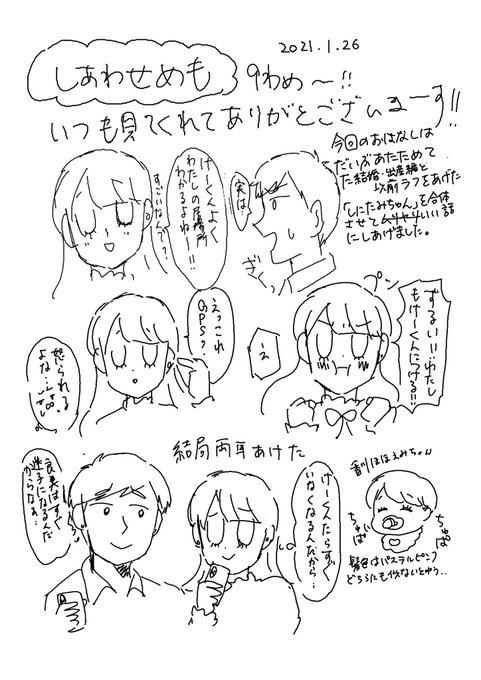 2021.1.26
しあわせめも 9わめ〜!!
いつも見てくれてありがとございまーす!!
今回のおはなしは
だいぶあたためて
た結婚・出産編と
以前ラフをあげた
「しにたみちゃん」を合体
させてムリヤリいい話
にしあげました。
実は
ぎくっ
けーくんよく
わたしの居場所
わかるよねー!!
すごいなんで?
プン
ずるいい!!わたし
もけーくんにつける!!
え
えっこれ
GPS?
怒られる
よな…さすがに…
結局両耳あけた
けーくんたらすぐ
いなくなるんだから…
はすぐ
迷子になるんだ
からなぁ…
香川ほほえみちゃん
ちゅぱ
ちゅぱ
髪色はパステルピンク
どちらにも似ないとゆう..